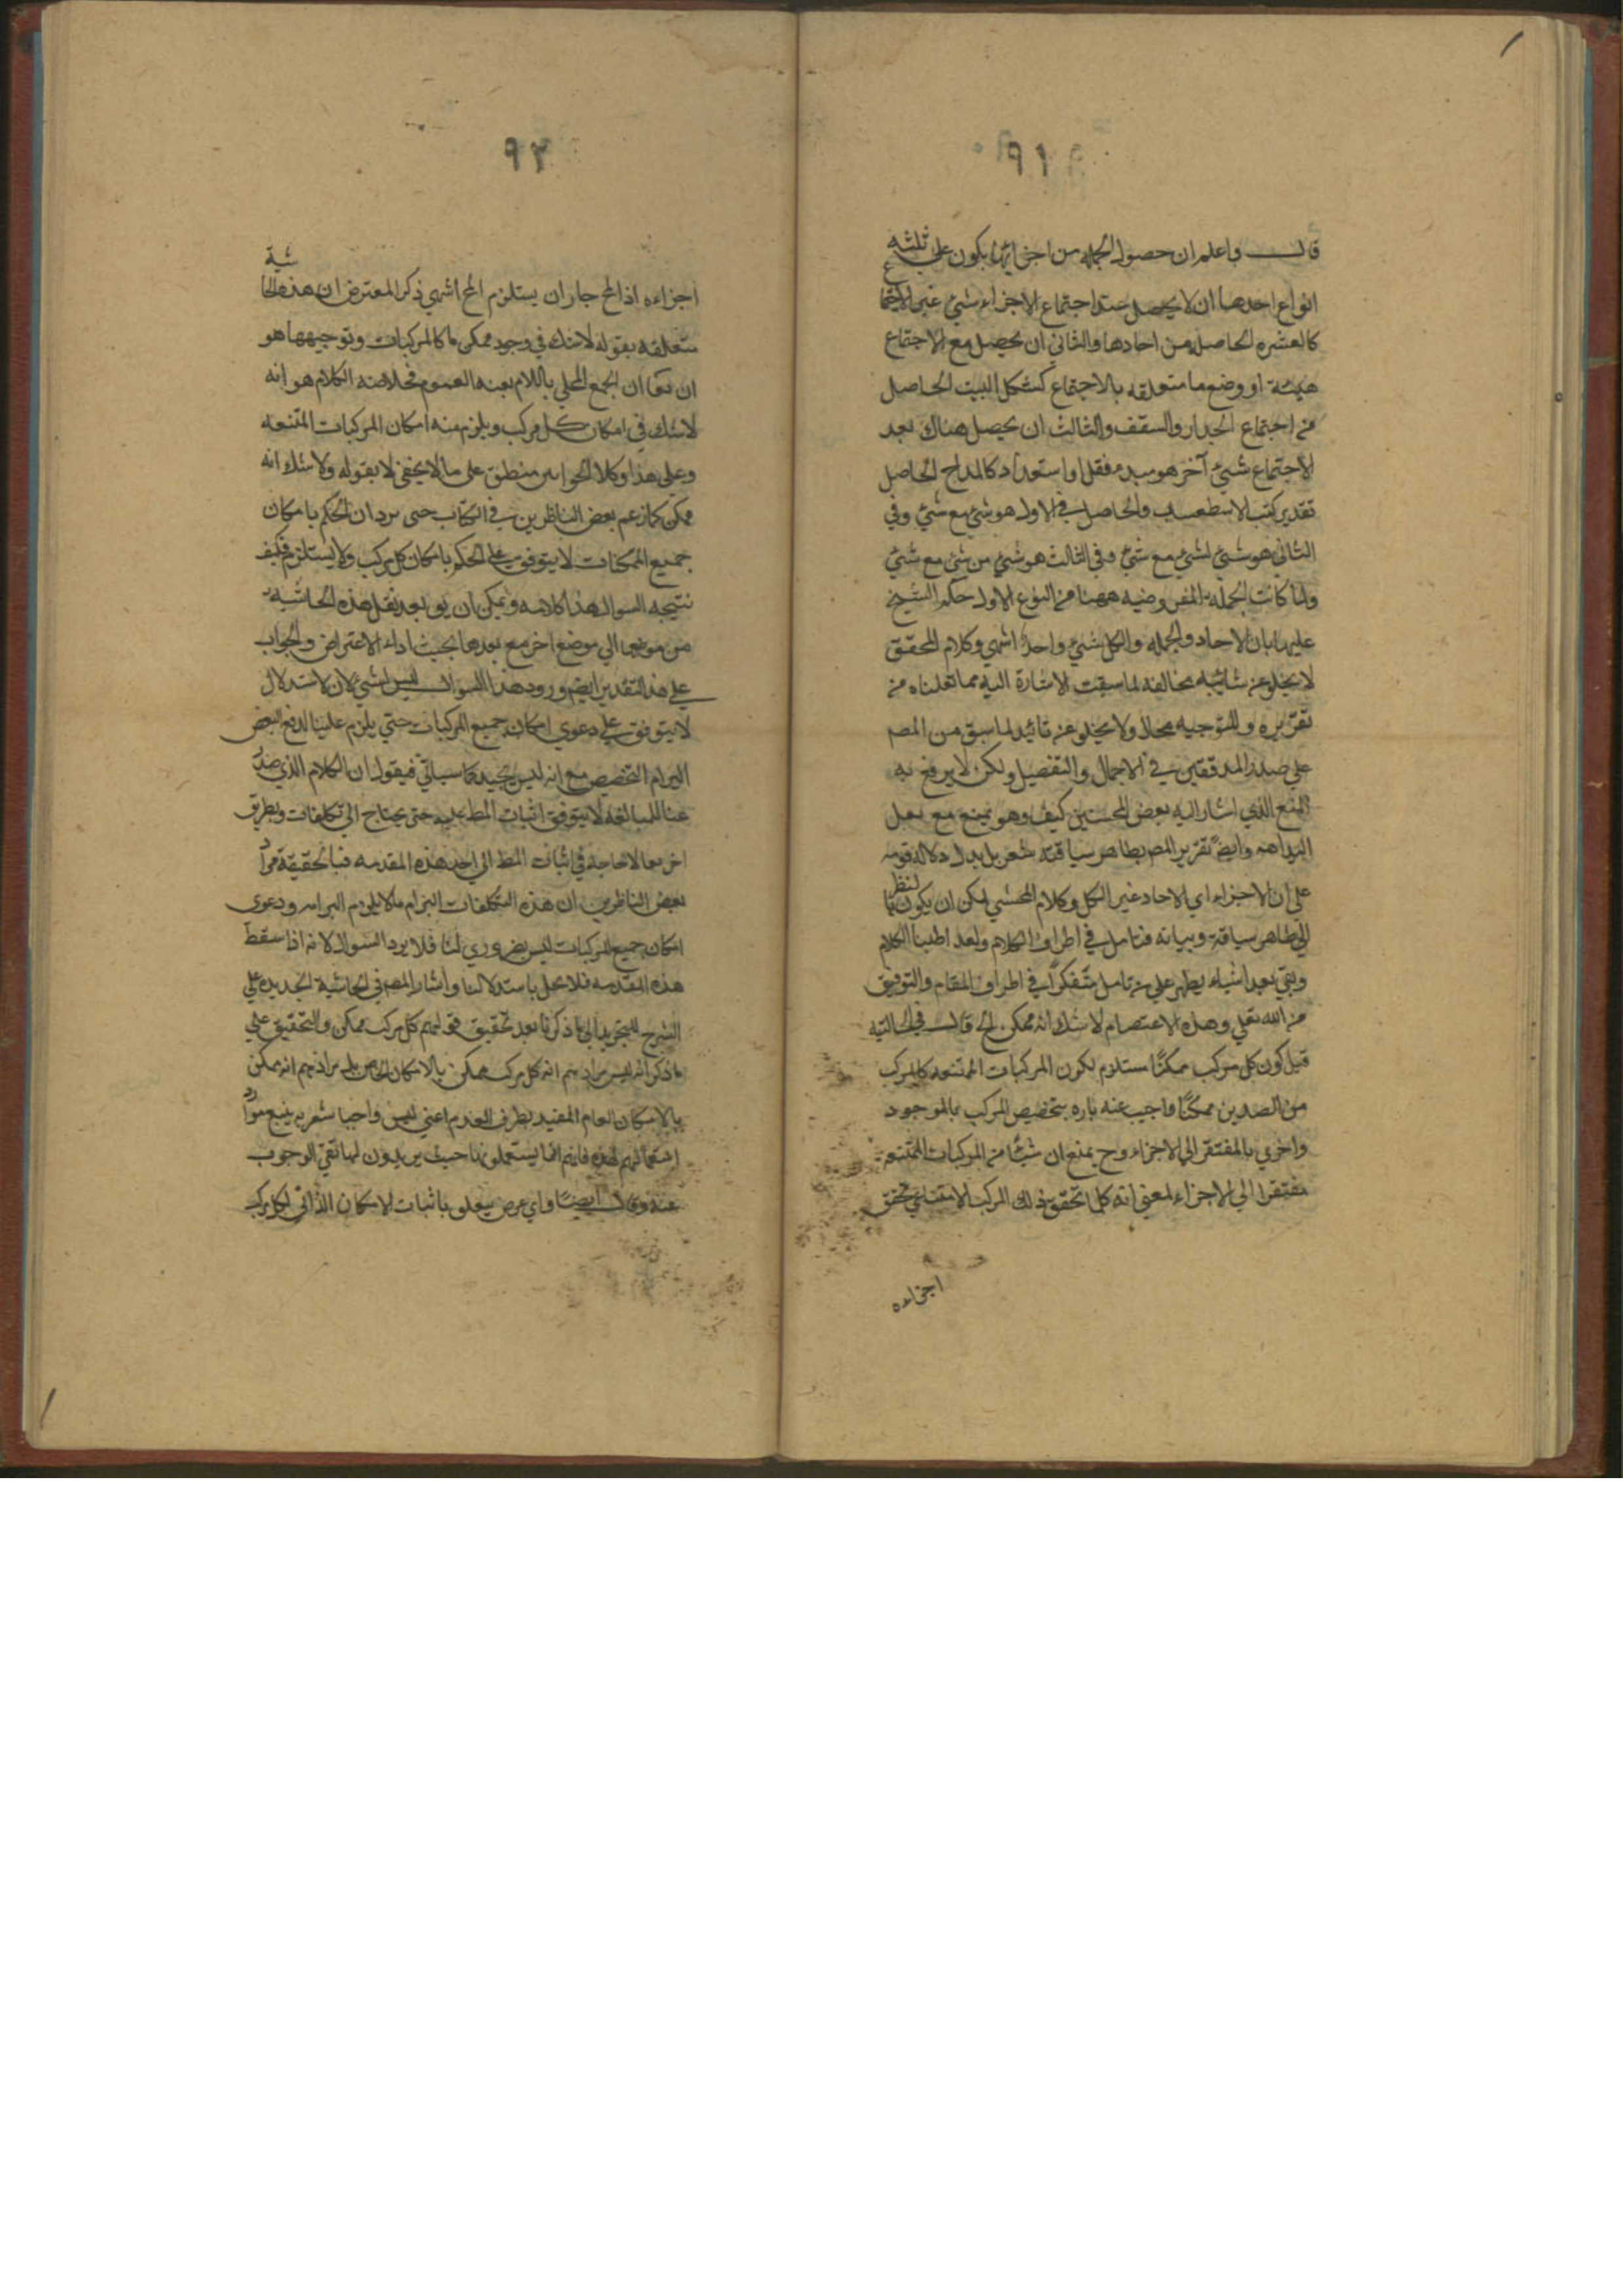 ٩١
قال واعلم ان حصول الجمله من اجزائها يكون على ثلثه
انواع احدها ان لا يحصل عند اجتماع الاجزاء شئ غير الاجتماع
كالعشره الحاصله من احادها والثاني ان يحصل مع الاجتماع
هيئة او وضع ما متعلقه بالاجتماع كشكل البيت الحاصل
من اجتماع الجدار والسقف والثالث ان يحصل هناك بعد
الاجتماع شئ آخر هو مبدء فعل او استعداد كالمزاج الحاصل
والحاصل في الاول هو شئ مع شئ وفي
الثاني هو شئ لشئ مع شئ وفي الثالث هو شئ من شئ مع شئ
ولما كانت الجمله المفروضه ههنا من النوع الاول حكم الشيخ
عليها بان الاحاد والجمله والكل شئ واحد انتهى وكلام المحقق
لا يخلو عن شائبه مخالفه لما سبقت الاشارة اليه مما نقلناه من
تقريره وللتوجيه مجال ولا يخلو عن تائيد لما سبق من المص
على صدر المدققين في الاجمال والتفصيل ولكن لا يرفع به
المنع الذي اشار اليه بعض المحشين كيف وهو يمنع مع
البداهه وايضً تقرير المص بظاهر سياقته مشعر بل يدل دلاله قويه
على ان الاجزاء اي الاحاد غير الكل وكلام المحشي لكن ان يكون بالنظر
الى ظاهر سياقة وبيانه فتامل في اطراف الكلام ولقد اطلبنا الكلام
وبقي بعد اشياء يظهر على من تامل متفكرًا في اطراف المقام والتوفيق
من الله تعلى وهذه الاعتصام لاشك انه ممكن الخ قال في الحاشيه
قيل كون كل مركب ممكنًا مستلزم لكون المركبات الممتنعه كالمركب
من الضدين ممكنًا واجيب عنه تاره بتخصيص المركب بالموجود
واخرى بالمفتقر الى الاجزاء وح يمنع ان شيئًا من المركبات الممتنعه
مفتقرا الى الاجزاء لمعنى انه كلما تحقق ذلك المركب تحقق
اجزاءه
٩٢
اجزاءه اذ المح جاز ان يستلزم المح انتهى ذكر المعترض ان هذه الحاشية
متعلقه بقوله لا شك في وجود ممكن ما كالمركبات وتوجيهها هو
ان يقا ان الجمع المحلى باللام يفيد العموم فخلاصه الكلام هو انه
لا شك في امكان كل مركب ويلزم منه امكان المركبات الممتنعه
وعلى هذا وكلا الجوابين منطبق على ما لا يخفى لا بقوله ولا شك انه
ممكن كما زعم بعض الناظرين في الكتاب حتى يرد ان الحكم بامكان
جميع الممكنات لا يتوقف على الحكم بامكان كل مركب ولا يستلزم فكيف
نتيجه السوال هذا كلامه ويمكن ان يق بعد نقل هذه الحاشيه
من موضعها الى موضع اخر مع بعدها بحيث اداء الاعتراض والجواب
على هذا التقدير ايضم ورود هذا السوال ليس لشئ لان الاستدلال
لا يتوقف على دعوى امكان جميع المركبات حتى يلزم علينا لدفع النقض
البرام التخصيص مع انه ليس بجيد كما سياتي فيقول ان الكلام الذي صدر
عنا للمبالغه لا يتوقف اثبات المط عليه حتى يحتاج الى تكلفات وبطريق
اخر لا حاجة في اثبات المط الى اخذ هذه المقدمه فبالحقيقة مراد
بعض الناظرين ان هذه التكلفات التزام ما لا يلزم التزامه ودعوى
امكان جميع المركبات ليس بضروري لنا فلا يرد السوال لانه اذا سقط
هذه المقدمه فلا يخل باستدلالنا واشار المص في الحاشية الجديده على
الشرح للتجريد الى ما ذكرنا بعد تحقيق قولهم كل مركب ممكن والتحقيق على
ما ذكر انه ليس مرادهم انه كل مركب ممكن بالامكان الخاص بل مرادهم انه ممكن
بالامكان العام المقيد بطرف العدم اعني ليس واجبا شعر به تتبع موارد
استعمالهم لهذه فانهم انما يستعملونها حيث يريدون لها نفي الوجوب
عنه وقال ايضًا واي غرض يتعلق باثبات الامكان الذاتي لكل مركب